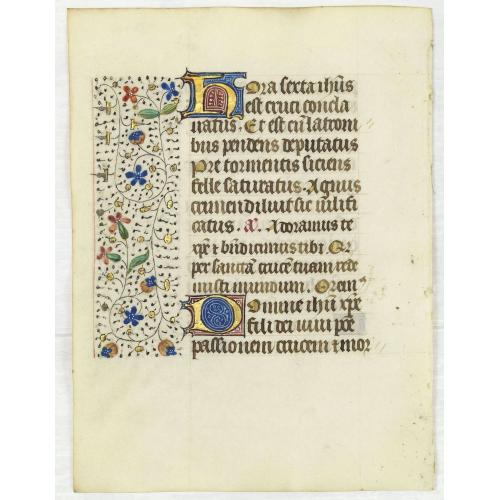 Hora sexta ihūs
est cruci concla
uatus. Et est cū latroni
bus pendens deputatus
Pre tormentis siciens
felle saturatus. Agnus
crimen diluit sic iustifi
catus. Adoramus te
xp̄e & bn̄dicimus tibi Qr
per sanctā crucē tuam rede
misti mundum. Orem
Domine ihū xp̄e
fili dei uiui pōe
passionem crucem & mor